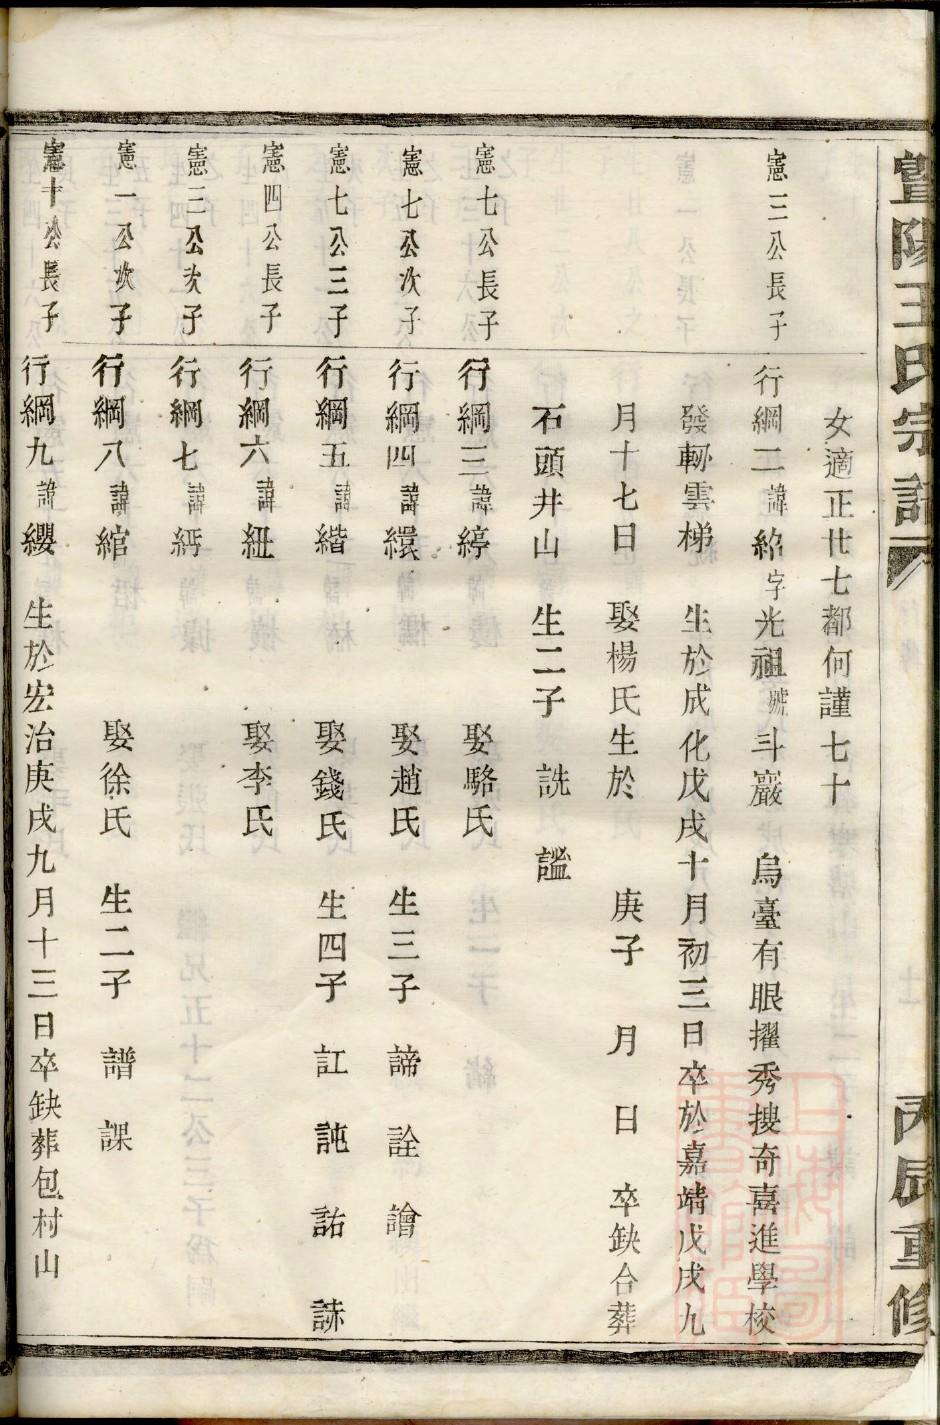 暨陽王氏宗譜
丙辰重修
女適正廿七都何謹七十
憲三公長子
行綱二諱綌字光祖號斗巖 烏臺有眼擢秀搜奇喜進學校
發軔雲梯 生於成化戊戌十月初三日卒於嘉靖戊戌九
月十七日 娶楊氏生於 庚子 月 日 卒缺合葬
石頭井山 生二子 詵 謐
憲七公長子
行綱三諱綍 娶駱氏
憲七公次子
行綱四諱繯 娶趙氏 生三子 諦 詮 譮
憲七公三子
行綱五諱緒 娶錢氏 生四子 訌 訰 詁 誄
憲四公長子
行綱六諱紐 娶李氏
憲二公次子
行綱七諱
憲一公次子
行綱八諱綰 娶徐氏 生二子 譜 課
憲十公長子
行綱九諱纓 生於宏治庚戌九月十三日卒缺葬包村山